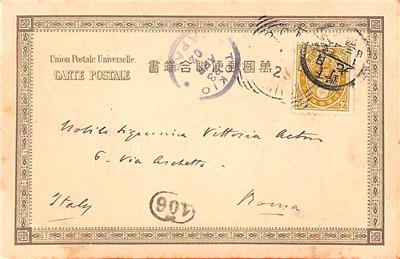 Union Postale Universelle.
CARTE POSTALE
書端合聯便郵國萬
TOKIO
JAPAN
Nobile Signorina Vittoria Acton
6. Via Archetto
Italy
Roma
106